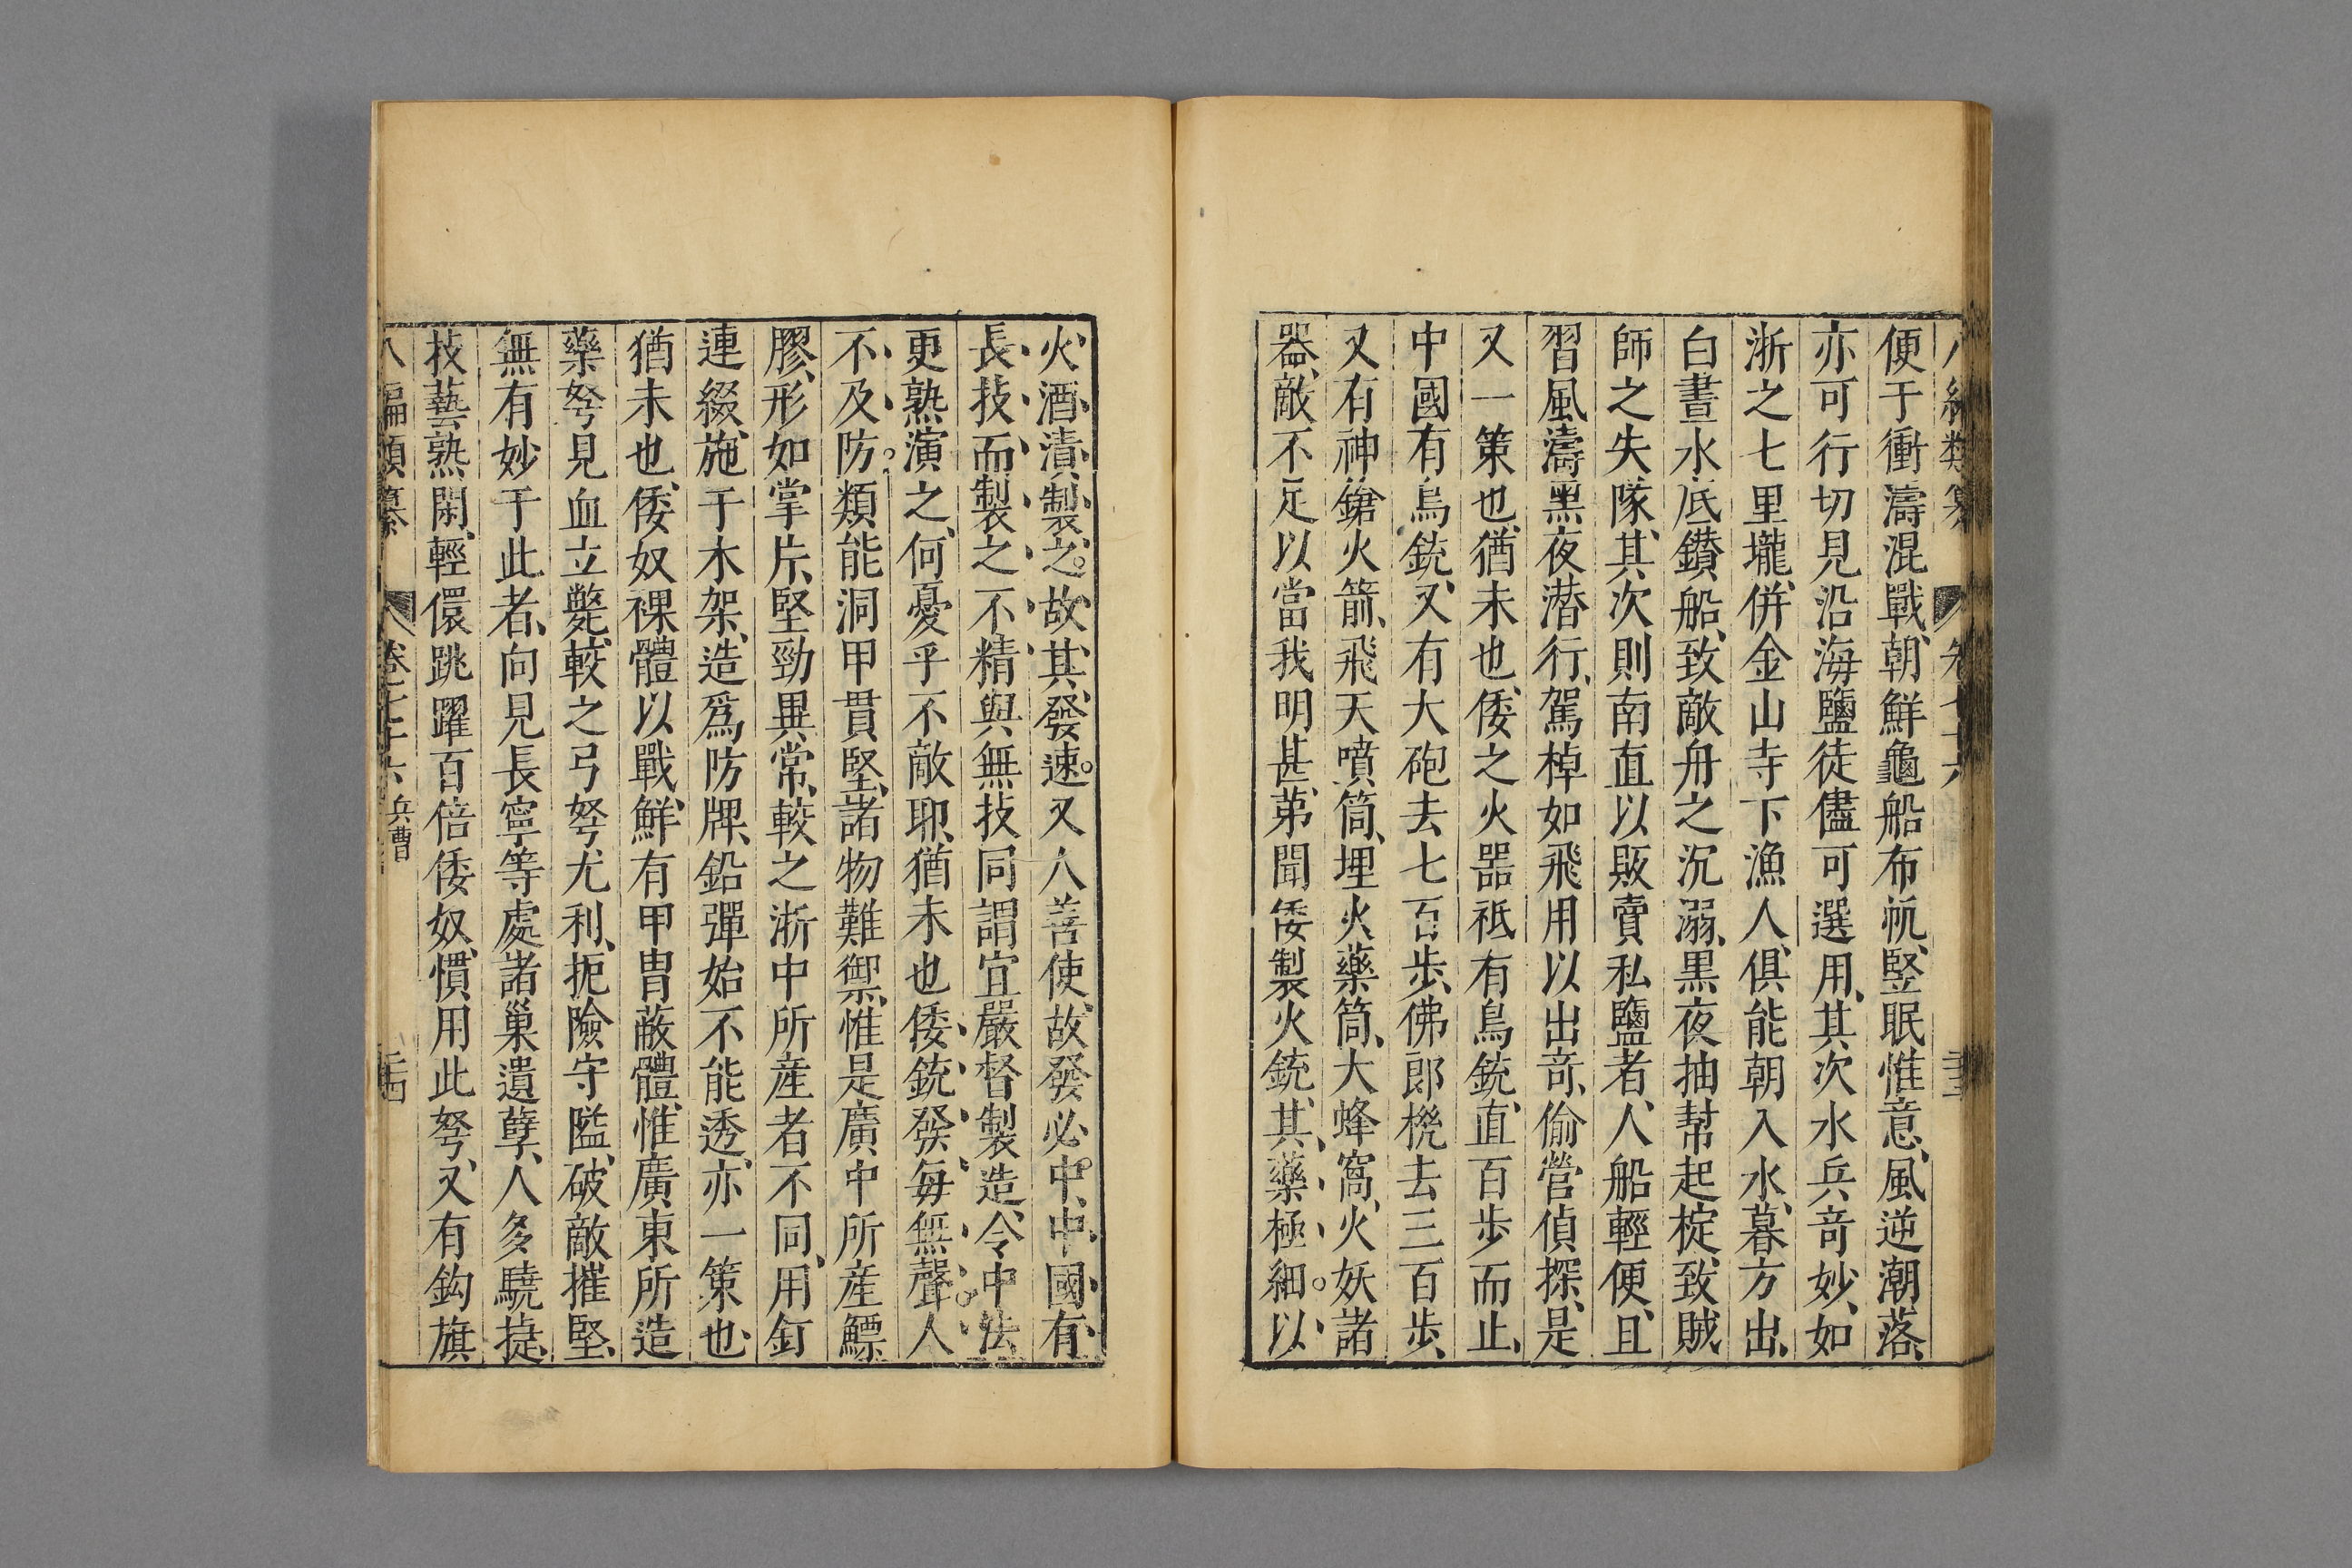 八編類纂 卷七十六 三三
便于衝濤混戰、朝鮮龜船布帆、竪眠惟意、風逆潮落、
亦可行切見沿海鹽徒儘可選用、其次水兵竒妙、如
浙之七里壠、併金山寺下漁人、俱能朝入水、暮方出、
白晝水底鑽船、致敵舟之沉溺、黒夜抽幇起椗、致賊
師之失隊、其次則南直以販賣私鹽者、人船輕便、且
習風濤黑夜潜行、駕棹如飛用以出竒、偷營偵探、是
又一策也、猶未也、倭之火器祗有鳥銃、直百步而止、
中國有鳥銃、又有大砲去七百步、佛郎機去三百步、
又有神鎗火箭、飛天噴筒、埋火藥筒、大蜂窩、火妖諸
器、敵不足以當我明甚、苐聞倭製火銃、其藥極細。以
火酒漬製之。故其發速。又人善使、故發必中、中國有
長技而製之不精與無技同謂宜嚴督製造、令中法
更熟演之、何憂乎不敵耶、猶未也倭銃發毎無聲。人
不及防。類能洞甲貫堅、諸物難禦、惟是廣中所産鰾
膠、形如掌片、堅勁異常、較之浙中所産者不同、用釘
連綴、施于木架、造爲防牌、鉛彈始不能透、亦一策也、
猶未也、倭奴裸體以戰、鮮有甲胄蔽體、惟廣東所造
藥弩見血立斃、較之弓弩尤利、扼險守隘、破敵摧堅、
無有妙于此者、向見長寧等處諸巢遺孽、人多驍捷、
技藝熟閑、輕儇跳躍百倍倭奴、慣用此弩、又有鈎旗
八編類纂 卷七十六 兵曹 三四